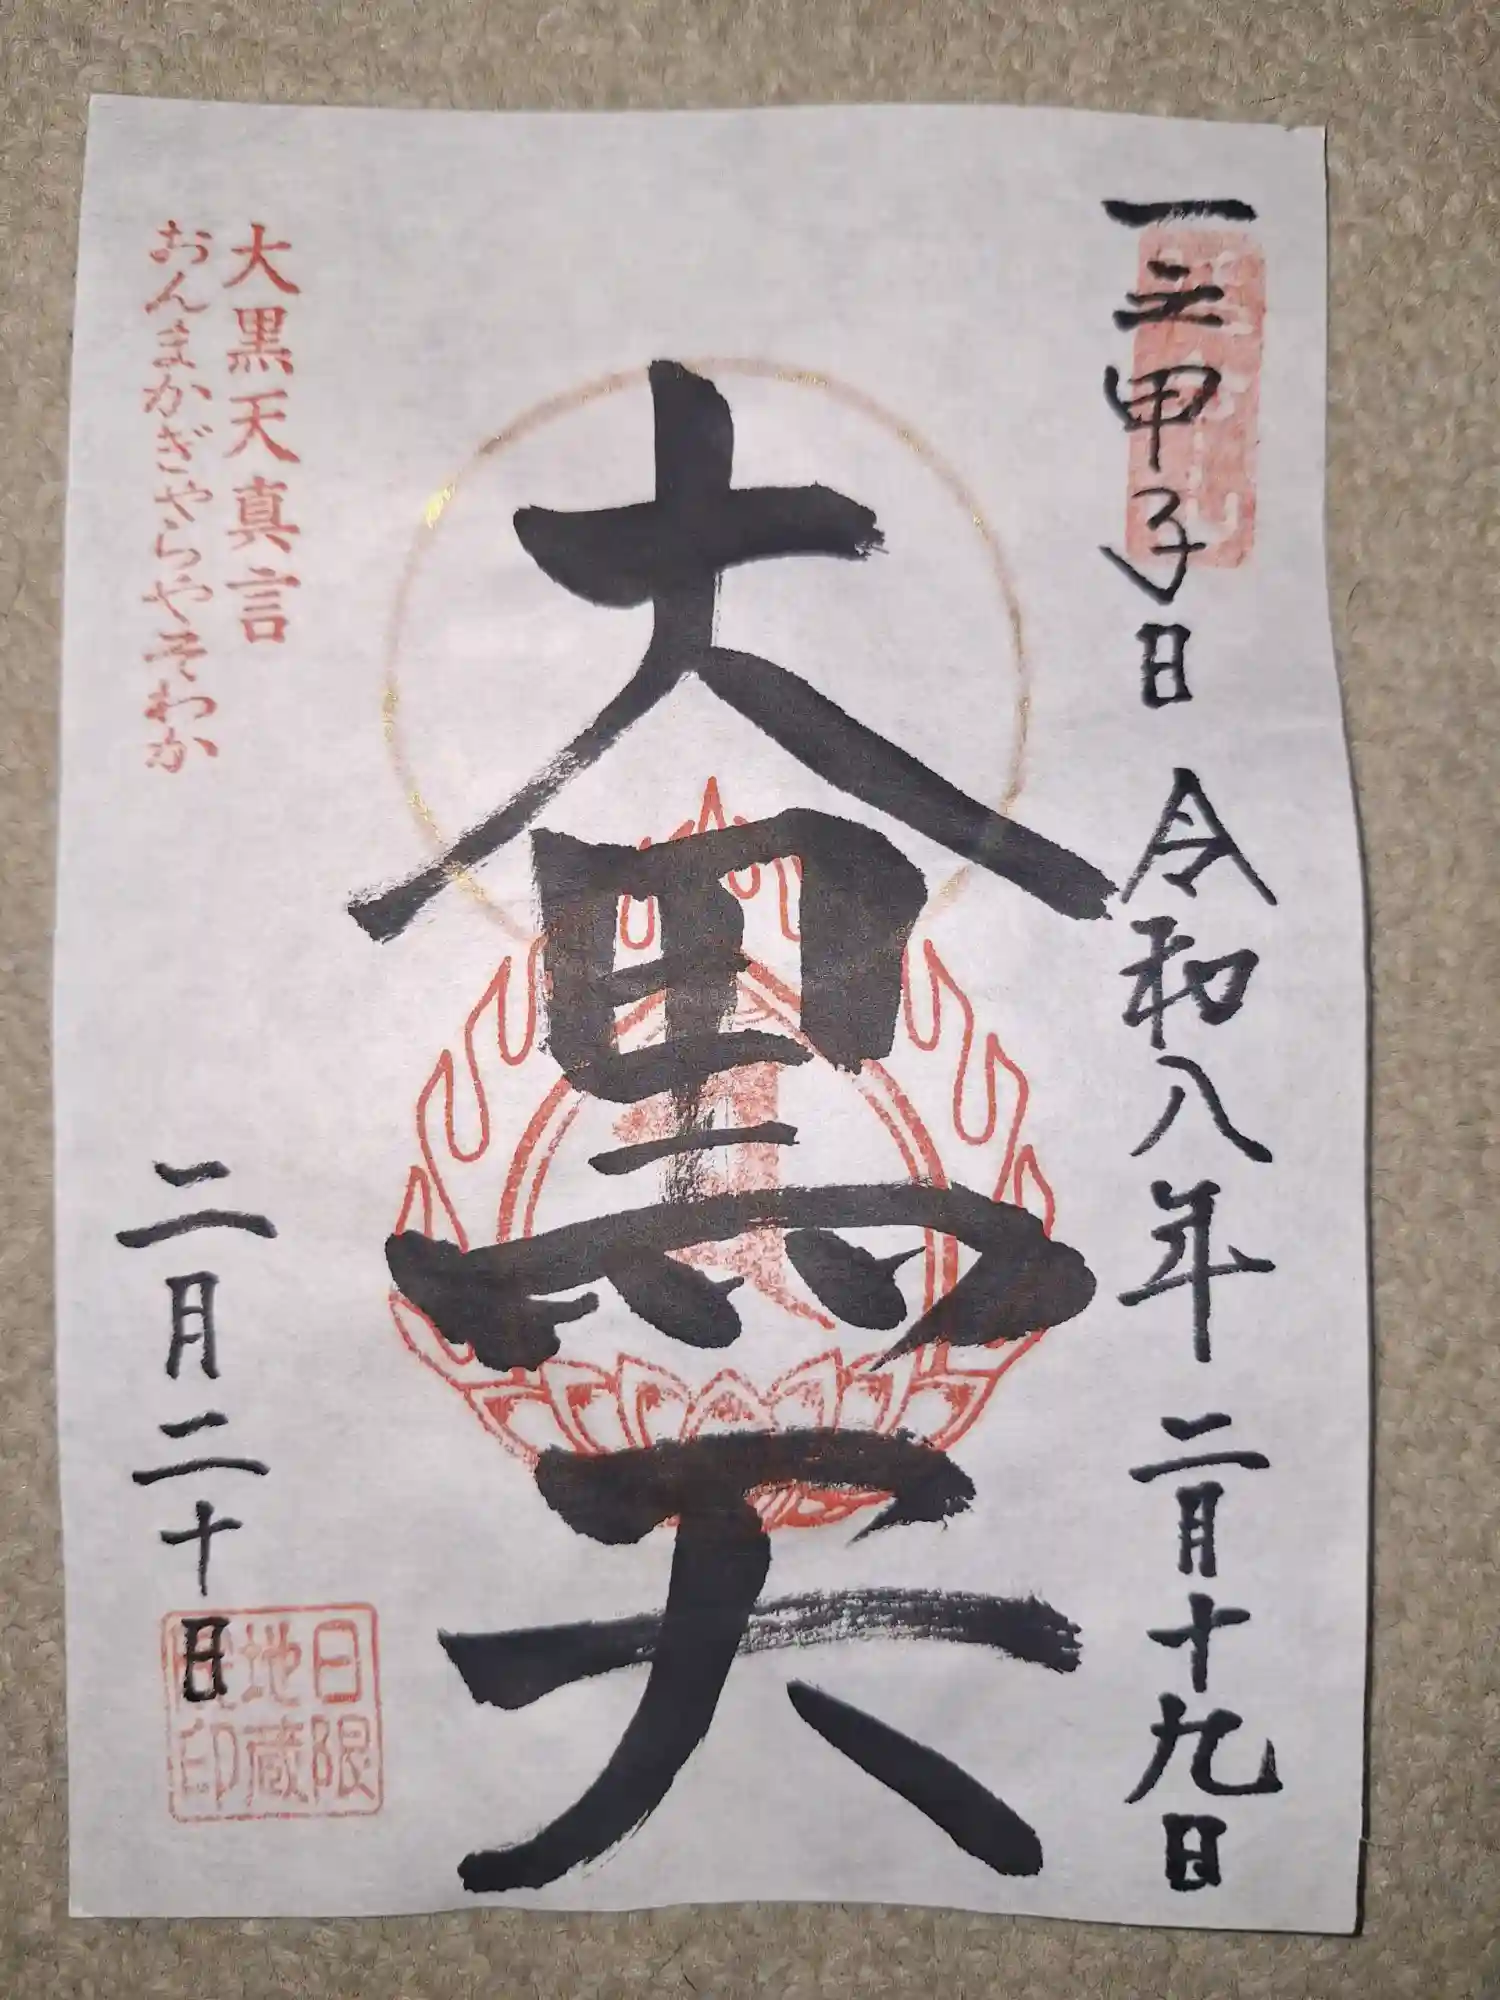 一之甲子日 令和八年 二月十九日
大黒天
大黒天真言
おんまかぎやらやそわか
二月二十日
日限
地蔵
院印